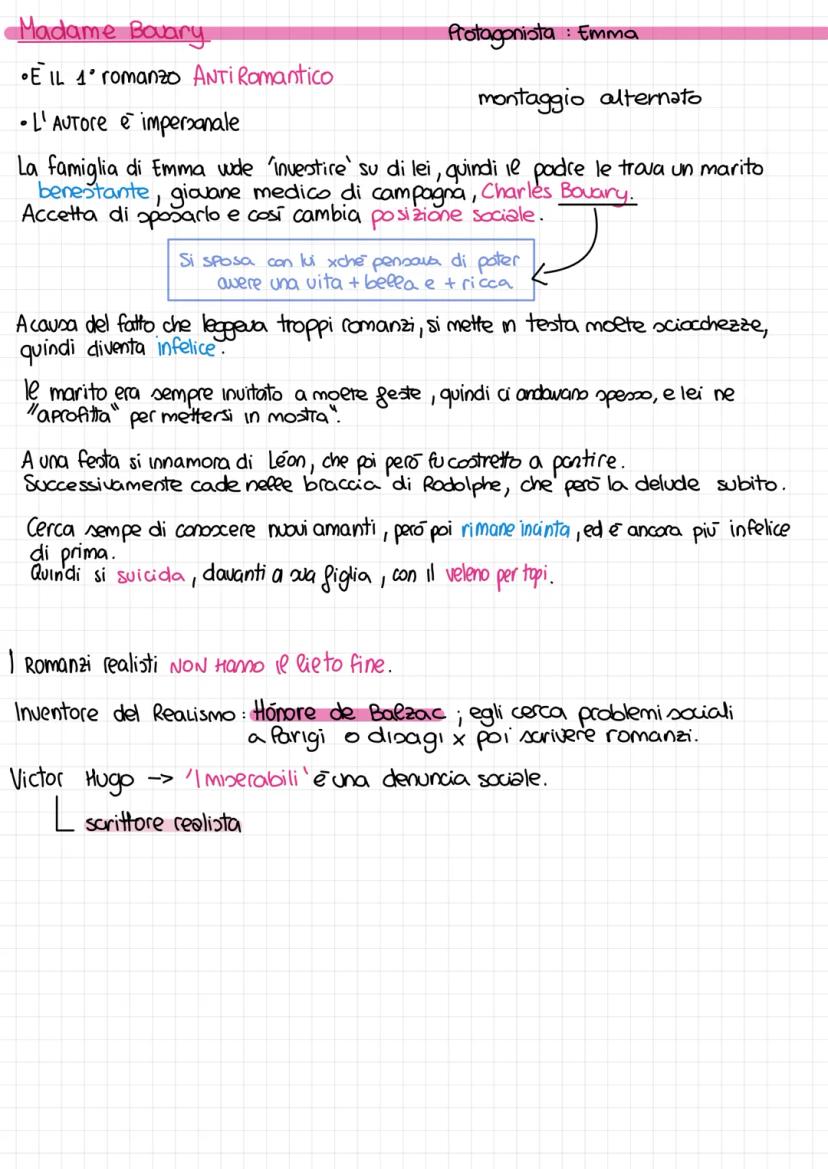 Madame Bovary
Protagonista : Emma
• È IL 1° romanzo ANTiRomantico
montaggio alternato
• L'AUTORE è impersonale
La famiglia di Emma vuole 'investire' su di lei, quindi il padre le trova un marito
benestante, giovane medico di campagna, Charles Bovary.
Accetta di sposarlo e così cambia posizione sociale.
Si sposa con lui xché pensava di poter
avere una vita + bella e + ricca
A causa del fatto che leggeva troppi romanzi, si mette in testa molte sciocchezze,
quindi diventa infelice.
Il marito era sempre invitato a molte feste, quindi ci andavano spesso, e lei ne
"aprofitta" per mettersi in mostra".
A una festa si innamora di Léon, che poi però fu costretto a partire.
Successivamente cade nelle braccia di Rodolphe, che però la delude subito.
Cerca sempe di conoscere nuovi amanti, però poi rimane incinta, ed è ancora più infelice
di prima.
Quindi si suicida, davanti a sua figlia, con il veleno per topi.
I Romanzi realisti NON HANNO il lieto fine.
Inventore del Realismo : Hónore de Balzac ; egli cerca problemi sociali
a Parigi o disagi x poi scrivere romanzi.
Victor Hugo -> 'I Miserabili' è una denuncia sociale.
scrittore realista